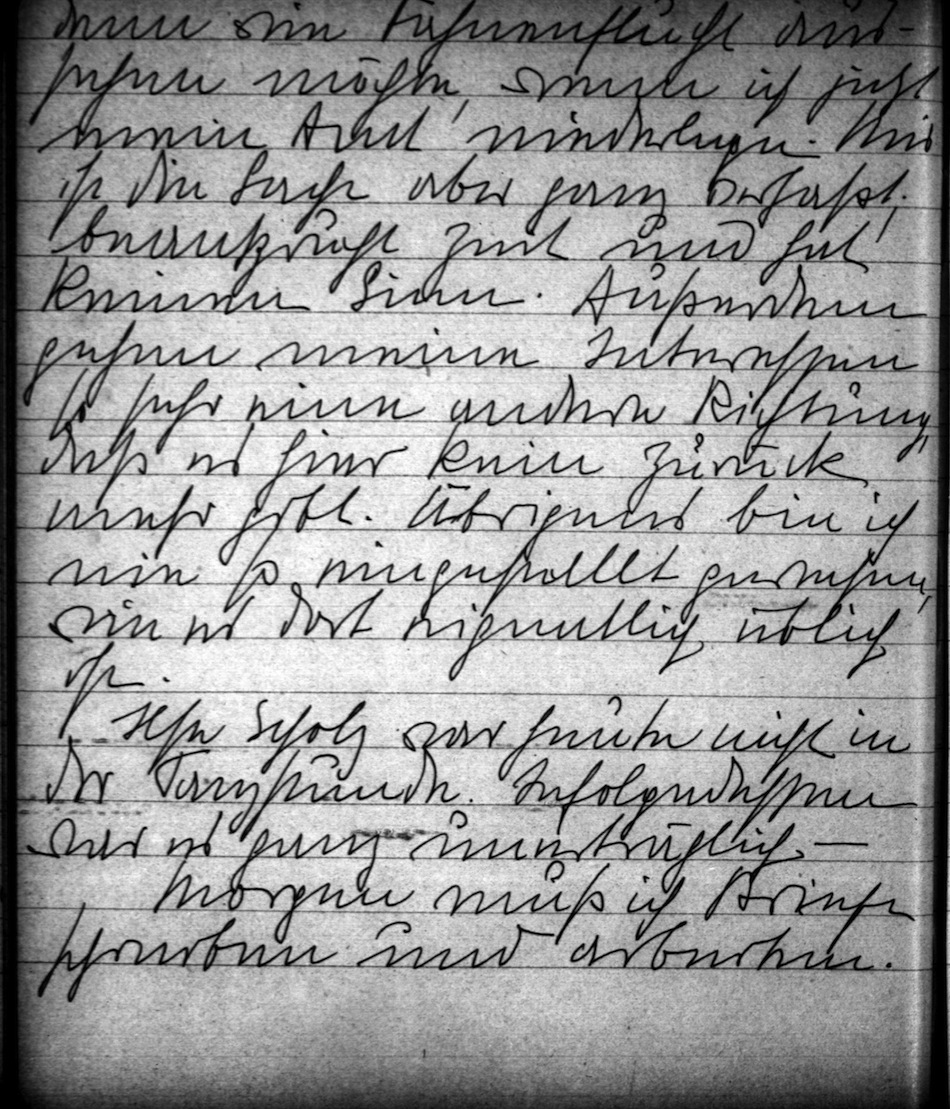 denn wie Fahnenflucht aus-
sehen möchte, wenn ich jetzt
mein Amt niederlege. Mir
ist die Sache aber ganz verhaßt,
beansprucht Zeit und hat
keinen Sinn. Außerdem
gehen meine Interessen
so sehr eine andere Richtung,
daß es hier kein Zurück
mehr gibt. Übrigens bin ich
nie so eingestellt gewesen,
wie es dort eigentlich üblich
ist.
Scholz war heute nicht in
der Tanzstunde. Infolgedessen
war es ganz unerträglich. —
Morgen muß ich Briefe
schreiben und arbeiten.